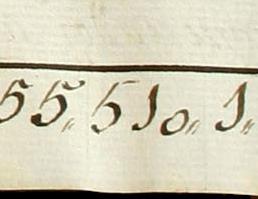 55„ 510„ 1„